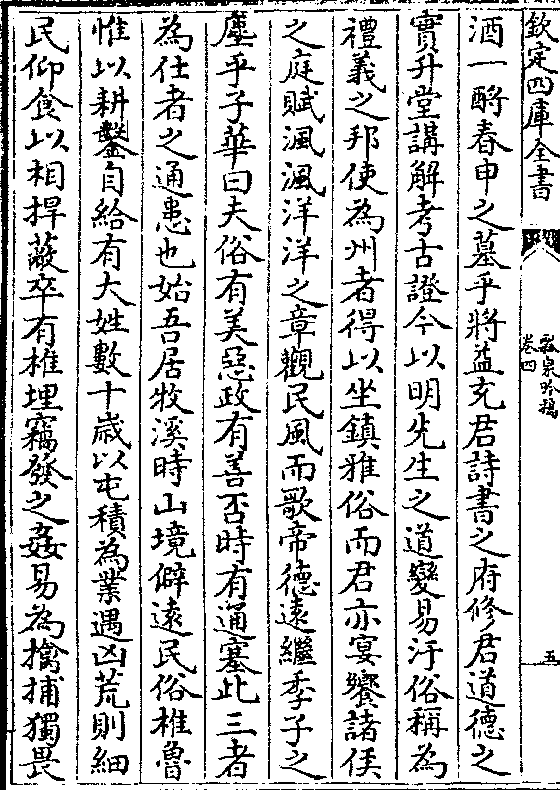 欽定四庫全書
瓢泉吟稿
卷四
五
酒一酹春申之墓乎將益充君詩書之府修君道德之
實升堂講解考古證今以明先生之道變易汙俗稱為
禮義之邦使為州者得以坐鎮雅俗而君亦宴饗諸侯
之庭賦渢渢洋洋之章觀民風而歌帝德遠繼季子之
塵乎子華曰夫俗有美惡政有善否時有通塞此三者
為仕者之通患也始吾居牧溪時山境僻遠民俗椎魯
惟以耕鑿自給有大姓數十歲以屯積為業遇凶荒則細
民仰食以相捍蔽卒有椎埋竊發之姦易為擒捕獨畏